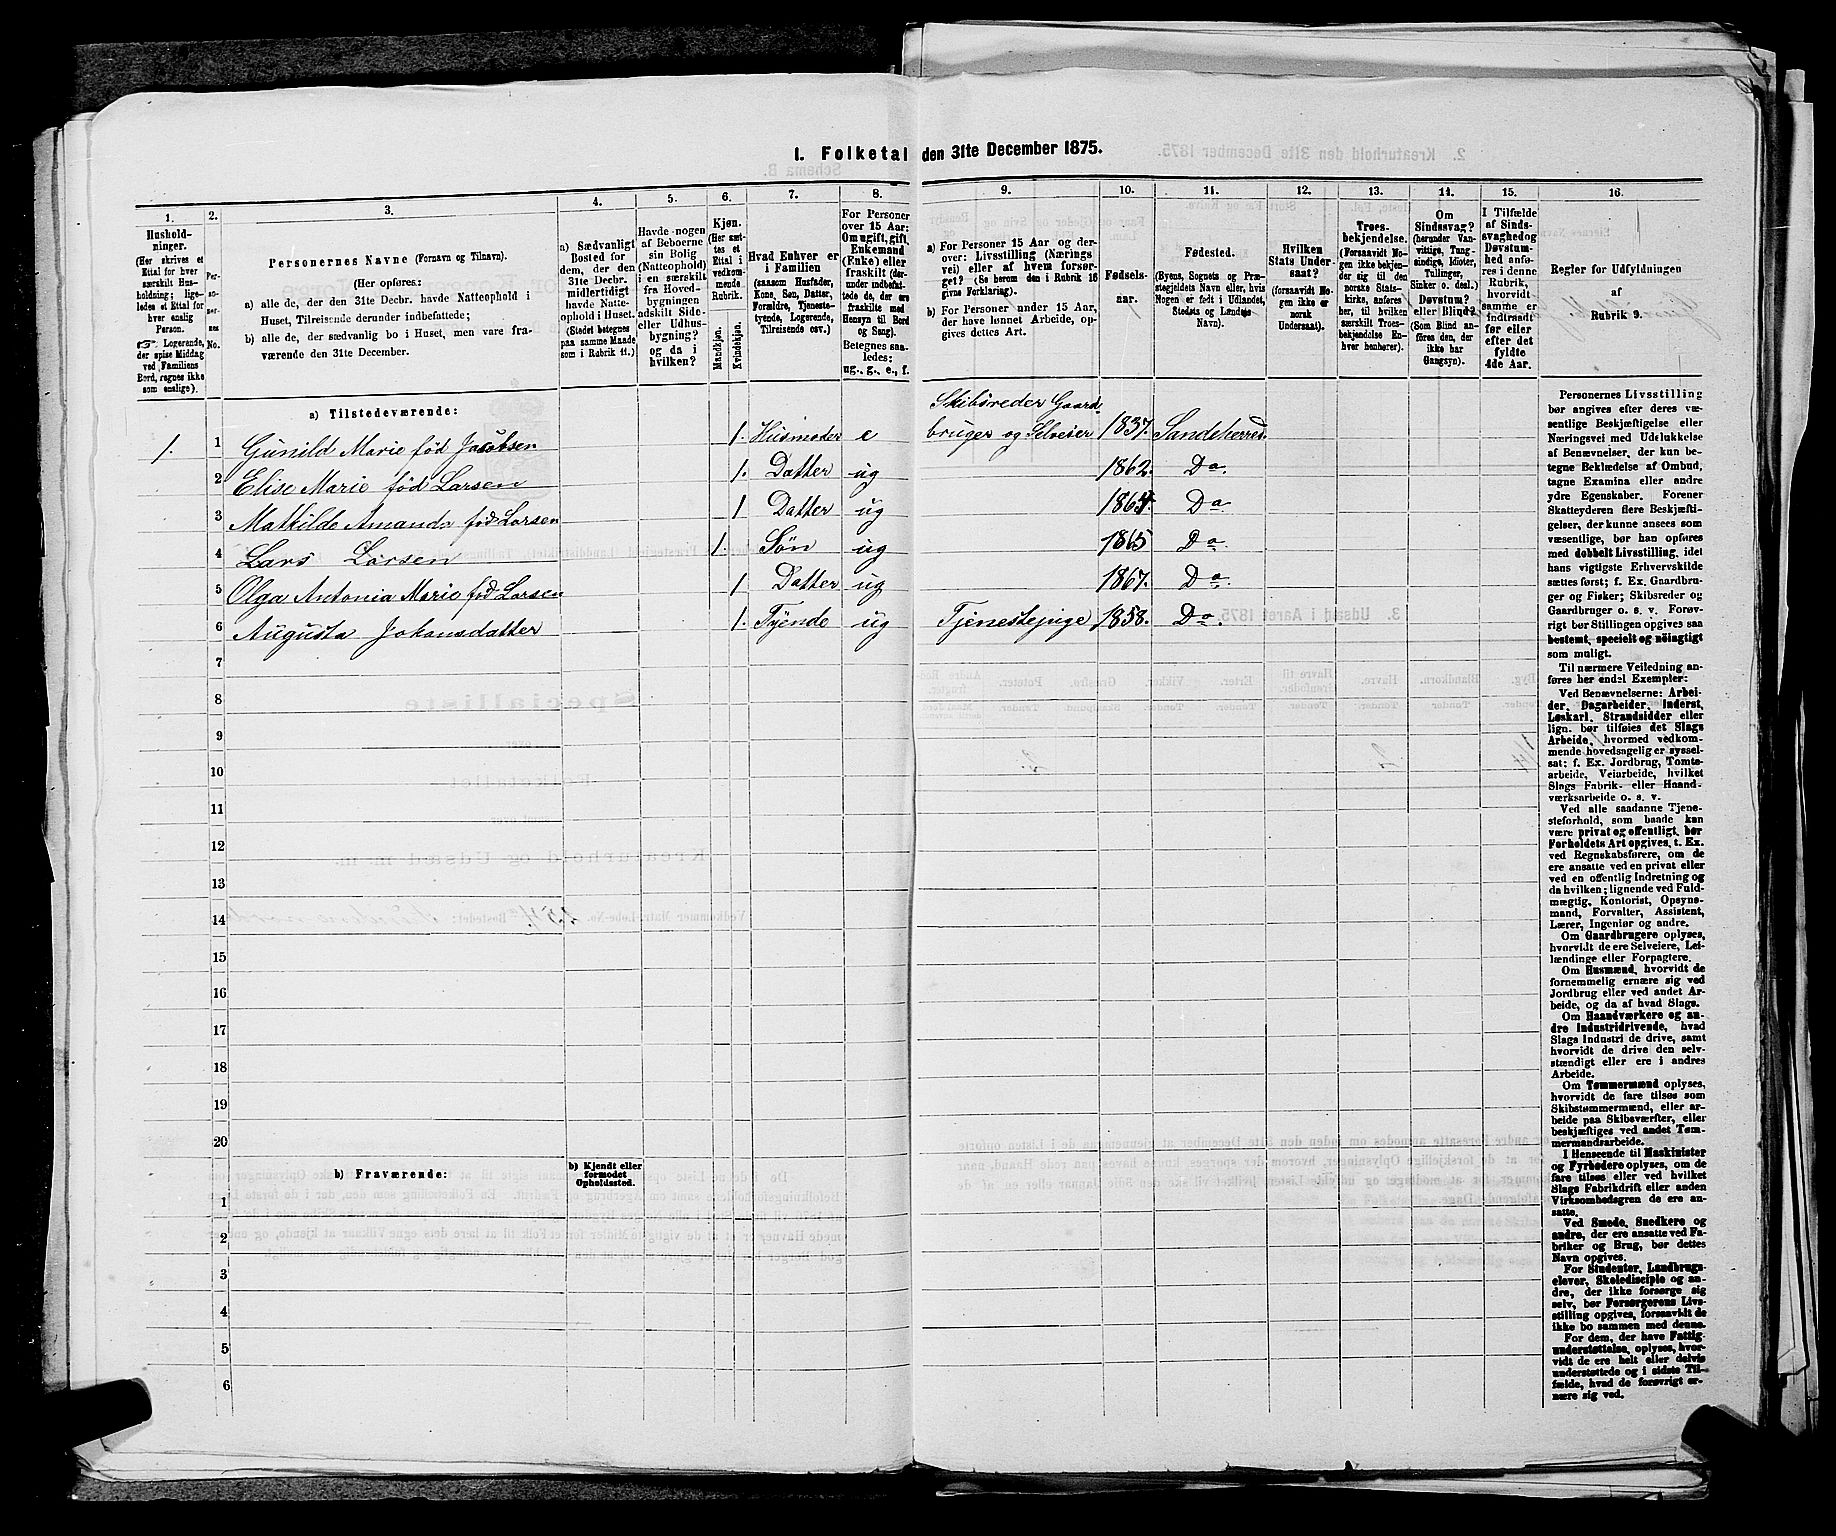 1. Folketal den 31te December 1875.
1.
Hushold-
ninger.
(Her skrives et
Ettal for hver
særskilt Hus-
holdning; lige-
ledes et Ettal for
hver enslig
Person.
Logerende,
der spise Middag
ved Familiens
Bord, regnes ikke
som enslige).
2.
No.
3.
Personernes Navne (Fornavn og Tilnavn).
(Her opføres:
a) alle de, der den 31te Decbr. havde Natteophold i
Huset, Tilreisende derunder indbefattede;
b) alle de, der sædvanlig bo i Huset, men vare fra-
værende den 31te December.
4.
a) Sædvanligt
Bosted for
dem, der den
31te Decbr.
midlertidigt
havde Natte-
ophold i Huset.
(Stedet betegnes
paa samme Maade
som i Rubrik 11.)
5.
Havde nogen
af Beboerne
sin Bolig
(Natteophold)
i en særskilt
fra Hoved-
bygningen
adskilt Side-
eller Udhus-
bygning?
og da i
hvilken?
6.
Kjøn.
(Her sæt-
tes et
Ettal i
vedkom-
mende
Rubrik.
Mandkjøn.
Kvindekjøn.
7.
Hvad Enhver er
i Familien
(saasom Husfader,
Kone, Søn, Datter,
Forældre, Tjeneste-
tyende, Logerende,
Tilreisende osv.)
8.
For Personer
over 15 Aar:
Om ugift, gift,
Enkemand
(Enke) eller
fraskilt (der-
under indbefat-
tede de, der ere
fraskilte med
Hensyn til Bord
og Seng).
Betegnes saa-
ledes:
ug., g., e., f.
9.
a) For Personer 15 Aar og der-
over: Livsstilling (Nærings
vei) eller af hvem forsør-
get? (Se herom den i Rubrik 16
givne Forklaring).
b) For Personer under 15 Aar,
der have lønnet Arbeide, op-
gives dettes Art.
10.
Fødsels-
aar.
11.
Fødested.
(Byens, Sognets og Præ-
stegjeldets Navn eller, hvis
Nogen er født i Udlandet,
Stedets og Landets
Navn).
12.
Hvilken
Stats Under-
saat?
(forsaavidt No-
gen ikke er
norsk
Undersaat).
13.
Troes-
bekjendelse.
(Forsaavidt No-
gen ikke bekjen-
der sig til den
norske Stats-
kirke, anføres
her, til hvilken
særskilt Troes-
bekjendelse En-
hver henhører).
14.
Om
Sindssvag?
(herunder Van-
vittige, Tung-
sindige, Idioter,
Tullinger,
Sinker o. desl.)
Døvstum?
eller Blind?
(Som Blind an-
føres den, der
ikke har
Gangsyn).
15.
I Tilfælde
af Sinds-
svaghed og
Døvstum-
hed anfø-
res i denne
Rubrik,
hvorvidt
samme er
indtraadt
før eller
efter det
fyldte
4de Aar.
16.
Regler for Udfyldningen
af
Rubrik 9.
a) Tilstedeværende:
1. 1 Gunild Marie fød Jacobsen 1. Husmoder e Skibsreder Gaard-
bruger og Selveier 1837. Sandeherred.
2 Elise Marie fød Larsen 1. Datter ug 1862. Do.
3 Mathilde Amanda fød Larsen 1 Datter ug 1864. Do
4 Lars Larsen 1. Søn ug 1865 Do.
5 Olga Antonia Marie fød Larsen 1 Datter ug 1867. Do.
6 Augusta Johansdatter 1. Tyende ug Tjenestepige 1858. Do.
7
8
9
10
11
12
13
14
15
16
17
18
19
20
b) Fraværende:
b) Kjendt eller
formodet
Opholdssted.
1
2
3
4
5
6
Personernes Livsstilling
bør angives efter deres væ-
sentlige Beskjæftigelse eller
Næringsvei med Udelukkelse
af Benævnelser, der kun be-
tegne Beklædelse af Ombud,
tagne Examina eller andre
ydre Egenskaber. Forener
Skatteyderen flere Beskjæfti-
gelser, der kunne ansees som
væsentlige, bør han opføres
med dobbelt Livsstilling, idet
hans vigtigste Erhvervskilde
sættes først; f. Ex. Gaardbru-
ger og Fisker; Skibsreder og
Gaardbruger o. s. v. Forøv-
rigt bør Stillingen opgives saa
bestemt, specielt og nöiagtigt
som muligt.
Til nærmere Veiledning an-
føres her endel Exempler:
Ved Benævnelserne: Arbei-
der, Dagarbeider, Inderst,
Løskarl, Strandsidder eller
lign. bør tilføies det Slags
Arbeide, hvormed vedkom-
mende hovedsagelig er syssel-
sat; f. Ex. Jordbrug, Tomte-
arbeide, Veiarbeide, hvilket
Slags Fabrik- eller Haand-
værksarbeide o. s. v.
Ved alle saadanne Tjene-
steforhold, som baade kan
være privat og offentligt, bør
Forholdets Art opgives, t. Ex.
ved Regnskabsførere, om de
ere ansatte ved en privat eller
ved en offentlig Indretning og
da hvilken; lignende ved Fuld-
mægtig, Kontorist, Opsyns-
mand, Forvalter, Assistent,
Lærer, Ingeniør og andre.
Om Gaardbrugere oplyses,
hvorvidt de ere Selveiere, Lei-
lændinge eller Forpagtere.
Om Husmænd, hvorvidt de
fornemmelig ernære sig ved
Jordbrug eller ved andet Ar-
beide, og da af hvad Slags.
Om Haandværkere og an-
dre Industridrivende, hvad
Slags Industri de drive, samt
hvorvidt de drive den selv-
stændigt eller ere i andres
Arbeide.
Om Tømmermænd oplyses,
hvorvidt de fare tilsøs som
Skibstømmermænd, eller ar-
beide paa Skibsværfter, eller
beskjæftiges ved andet Tøm-
mermandsarbeide.
I Henseende til Maskinister
og Fyrbødere oplyses, om de
fare tilsøs eller ved hvilket
Slags Fabrikdrift eller anden
Virksomhedsgren de ere an-
satte.
Ved Smede, Snedkere og
andre, der ere ansatte ved Fa-
briker og Brug, bør dettes
Navn opgives.
For Studenter, Landbrugs-
elever, Skoledisciple og an-
dre, der ikke forsørge sig
selv, bør Forsørgerens Livs-
stilling opgives, forsaavidt de
ikke bo sammen med denne.
For dem, der have Fattig-
understøttelse, oplyses, hvor-
vidt de ere helt eller delvis
understøttede og i sidste Til-
fælde, hvad de forøvrigt er-
nære sig ved.